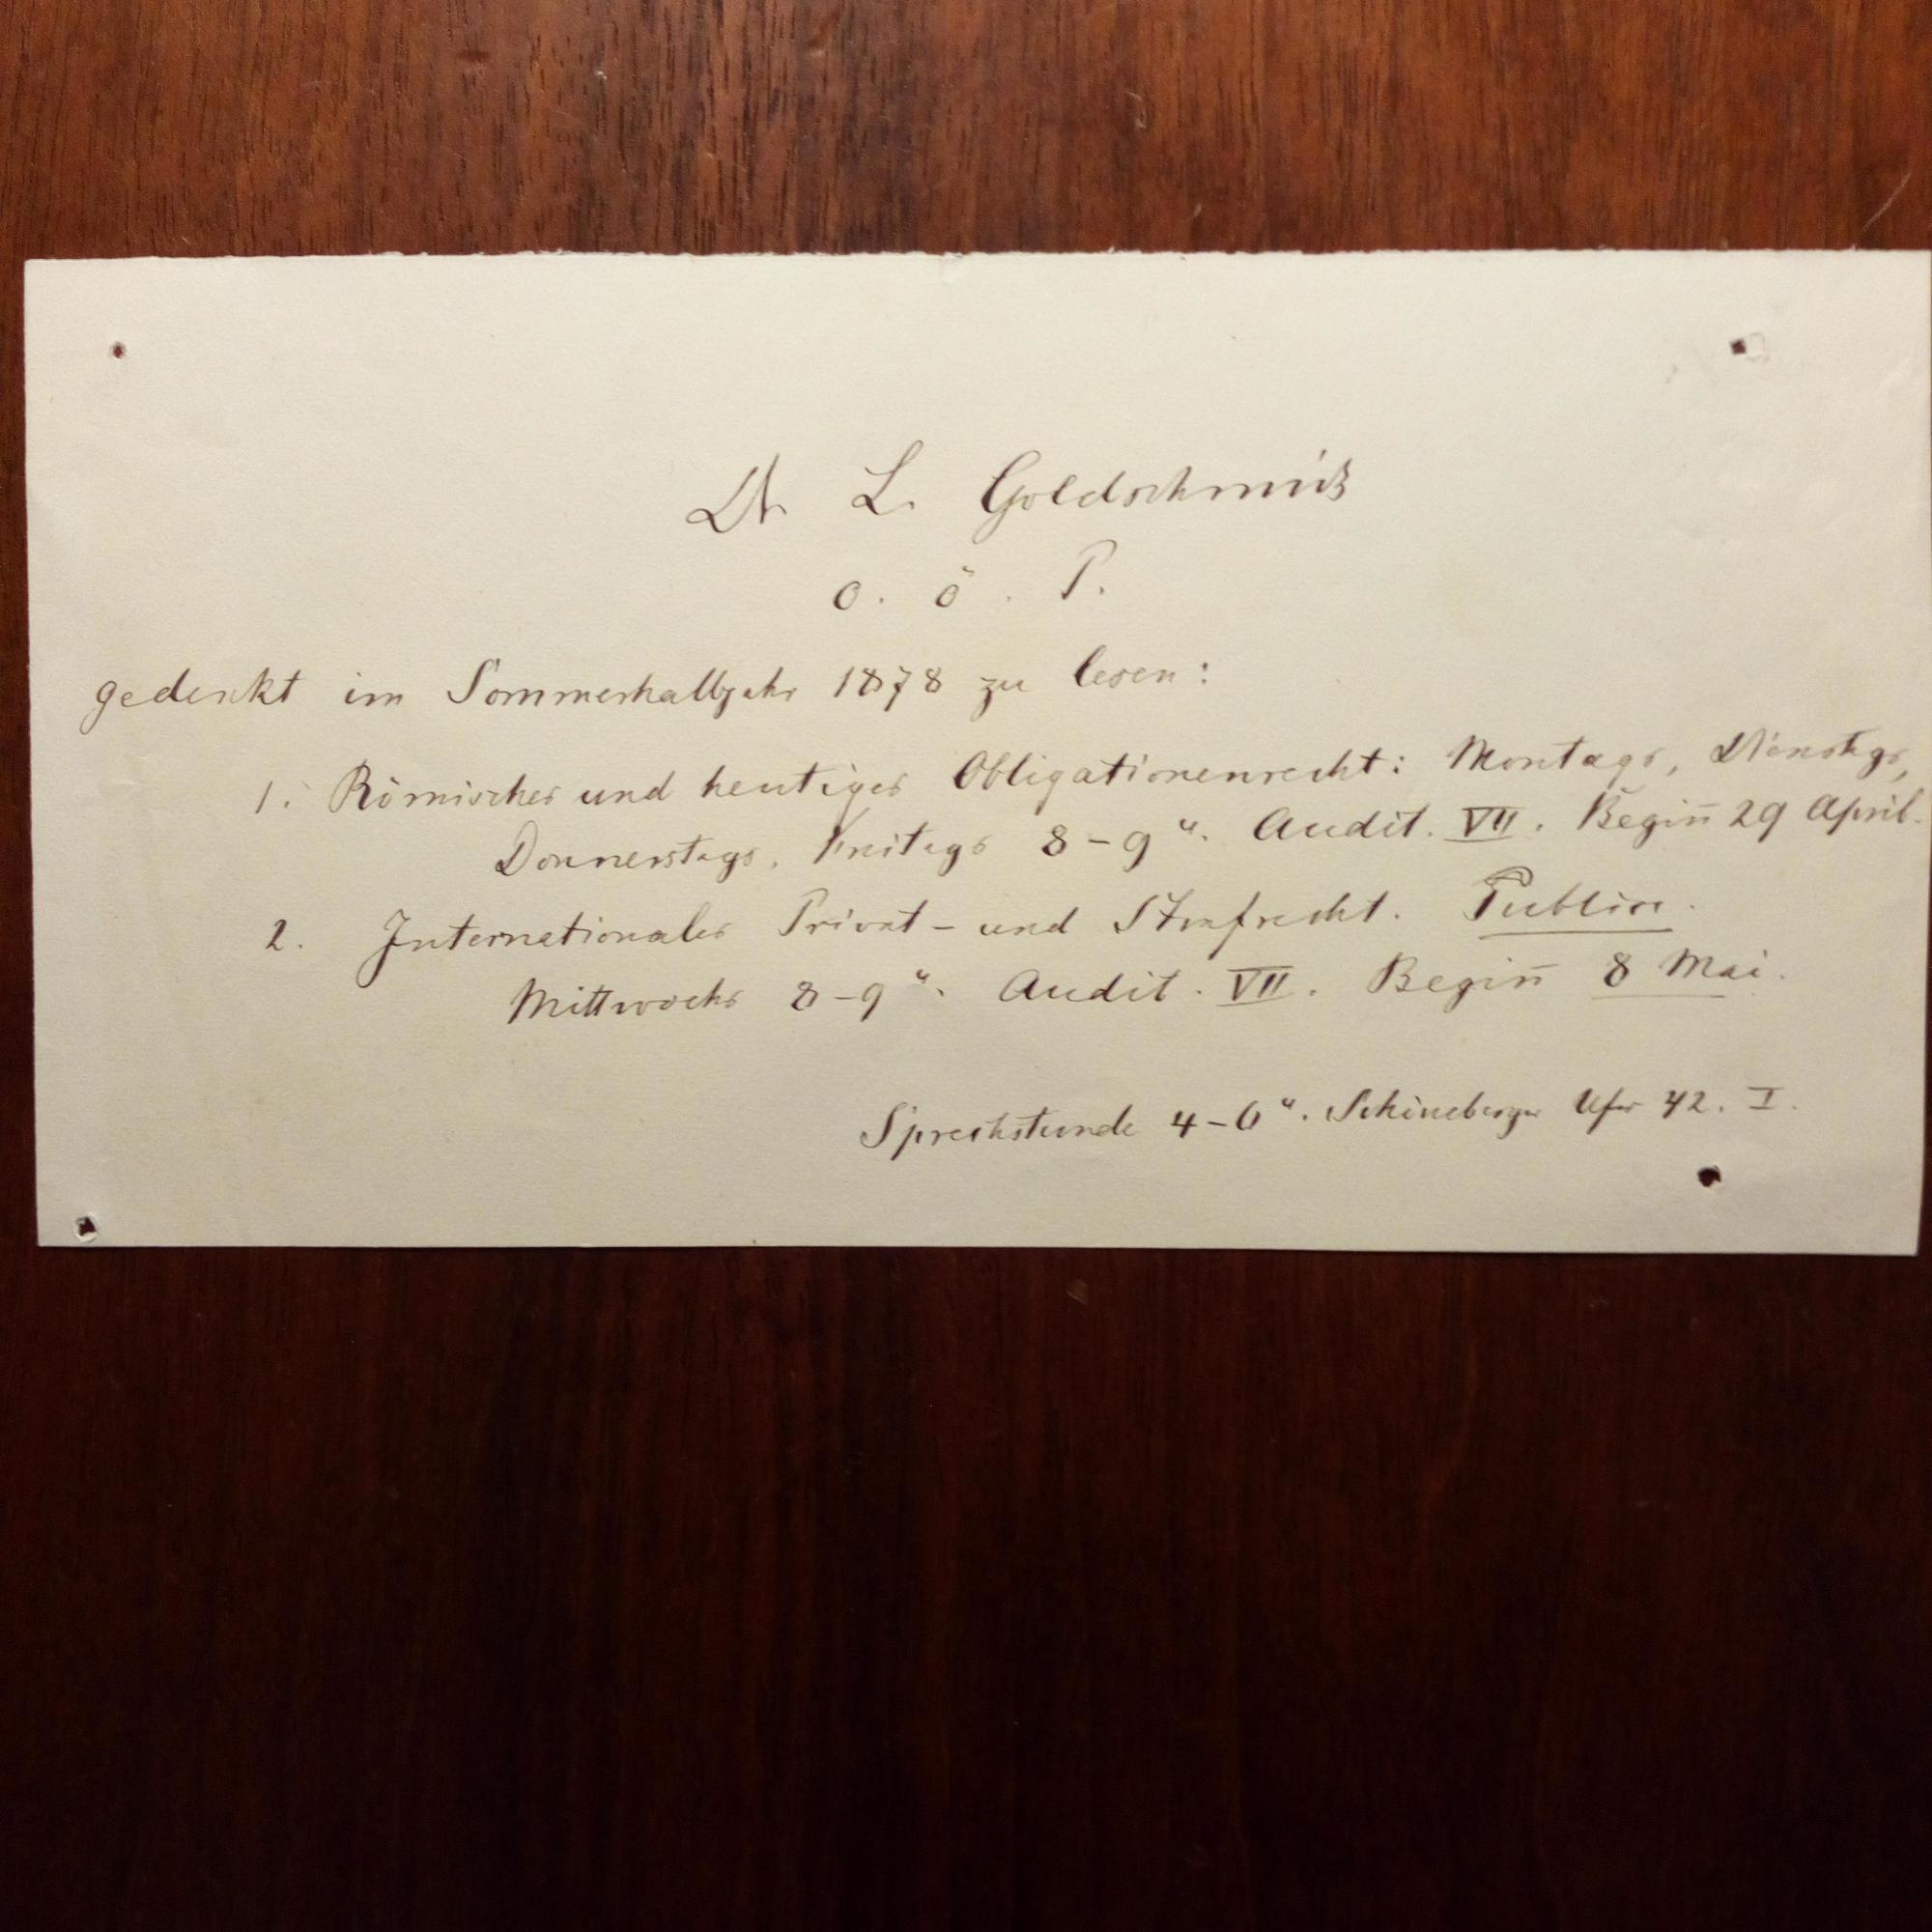 Dr. L. Goldschmidt
o. ö. P.
gedenkt im Sommerhalbjahr 1878 zu lesen:
1. Römisches und heutiges Obligationenrecht: Montags, Dienstgs,
Donnerstags, Freitags 8-9 u. Audit. VII. Begin̄ 29 April.
2. Internationales Privat- und Strafrecht. Publice.
Mittwochs 8-9 u. Audit. VII. Begin̄ 8 Mai.
Sprechstunde 4-6 u. Schöneberger Ufer 42. I.